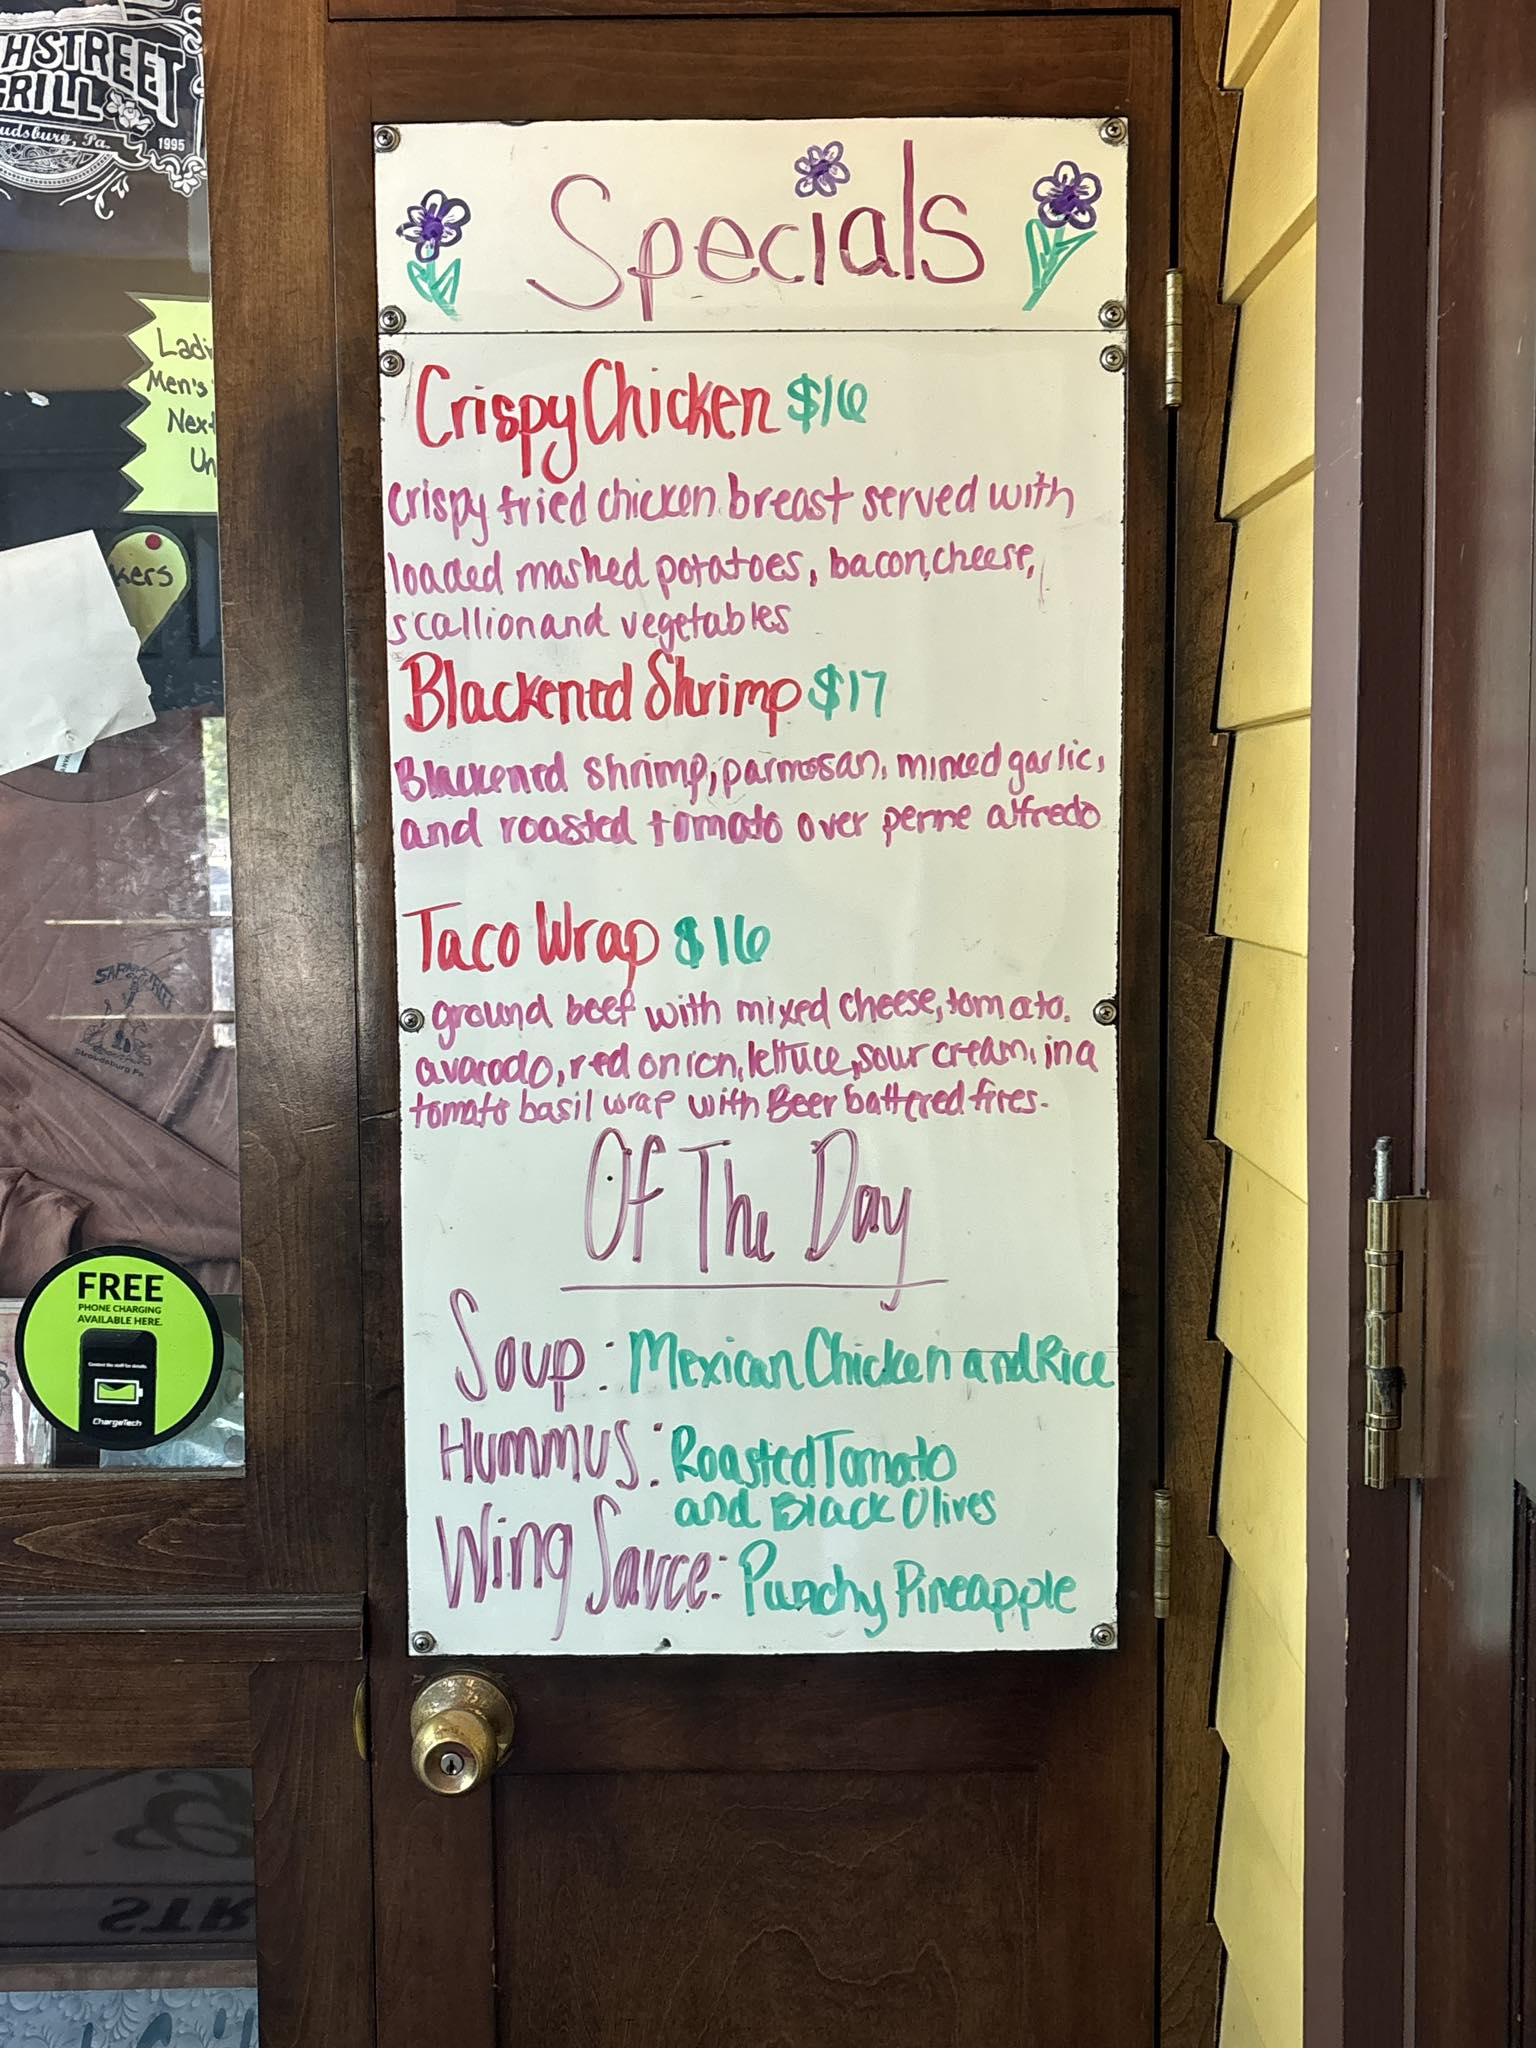 HSTREET
GRILL
udsburg, Pa.
1995
Ladi
Men's
Next
Un
kers
Specials
Crispy Chicken $16
Crispy fried chicken breast served with
loaded mashed potatoes, bacon, cheese,
scallion and vegetables
Blackened Shrimp $17
Blackened shrimp, parmesan, minced garlic,
and roasted tomato over penne alfredo
Taco Wrap $16
ground beef with mixed cheese, tomato,
avacado, red onion, lettuce, sour cream, in a
tomato basil wrap with Beer battered fires.
Of The Day
Soup: Mexican Chicken and Rice
Hummus: Roasted Tomato
and Black Olives
Wing Sauce: Punchy Pineapple
Stroudsburg Pa
FREE
PHONE CHARGING
AVAILABLE HERE.
Contact the staff for details.
ChargeTech
STR